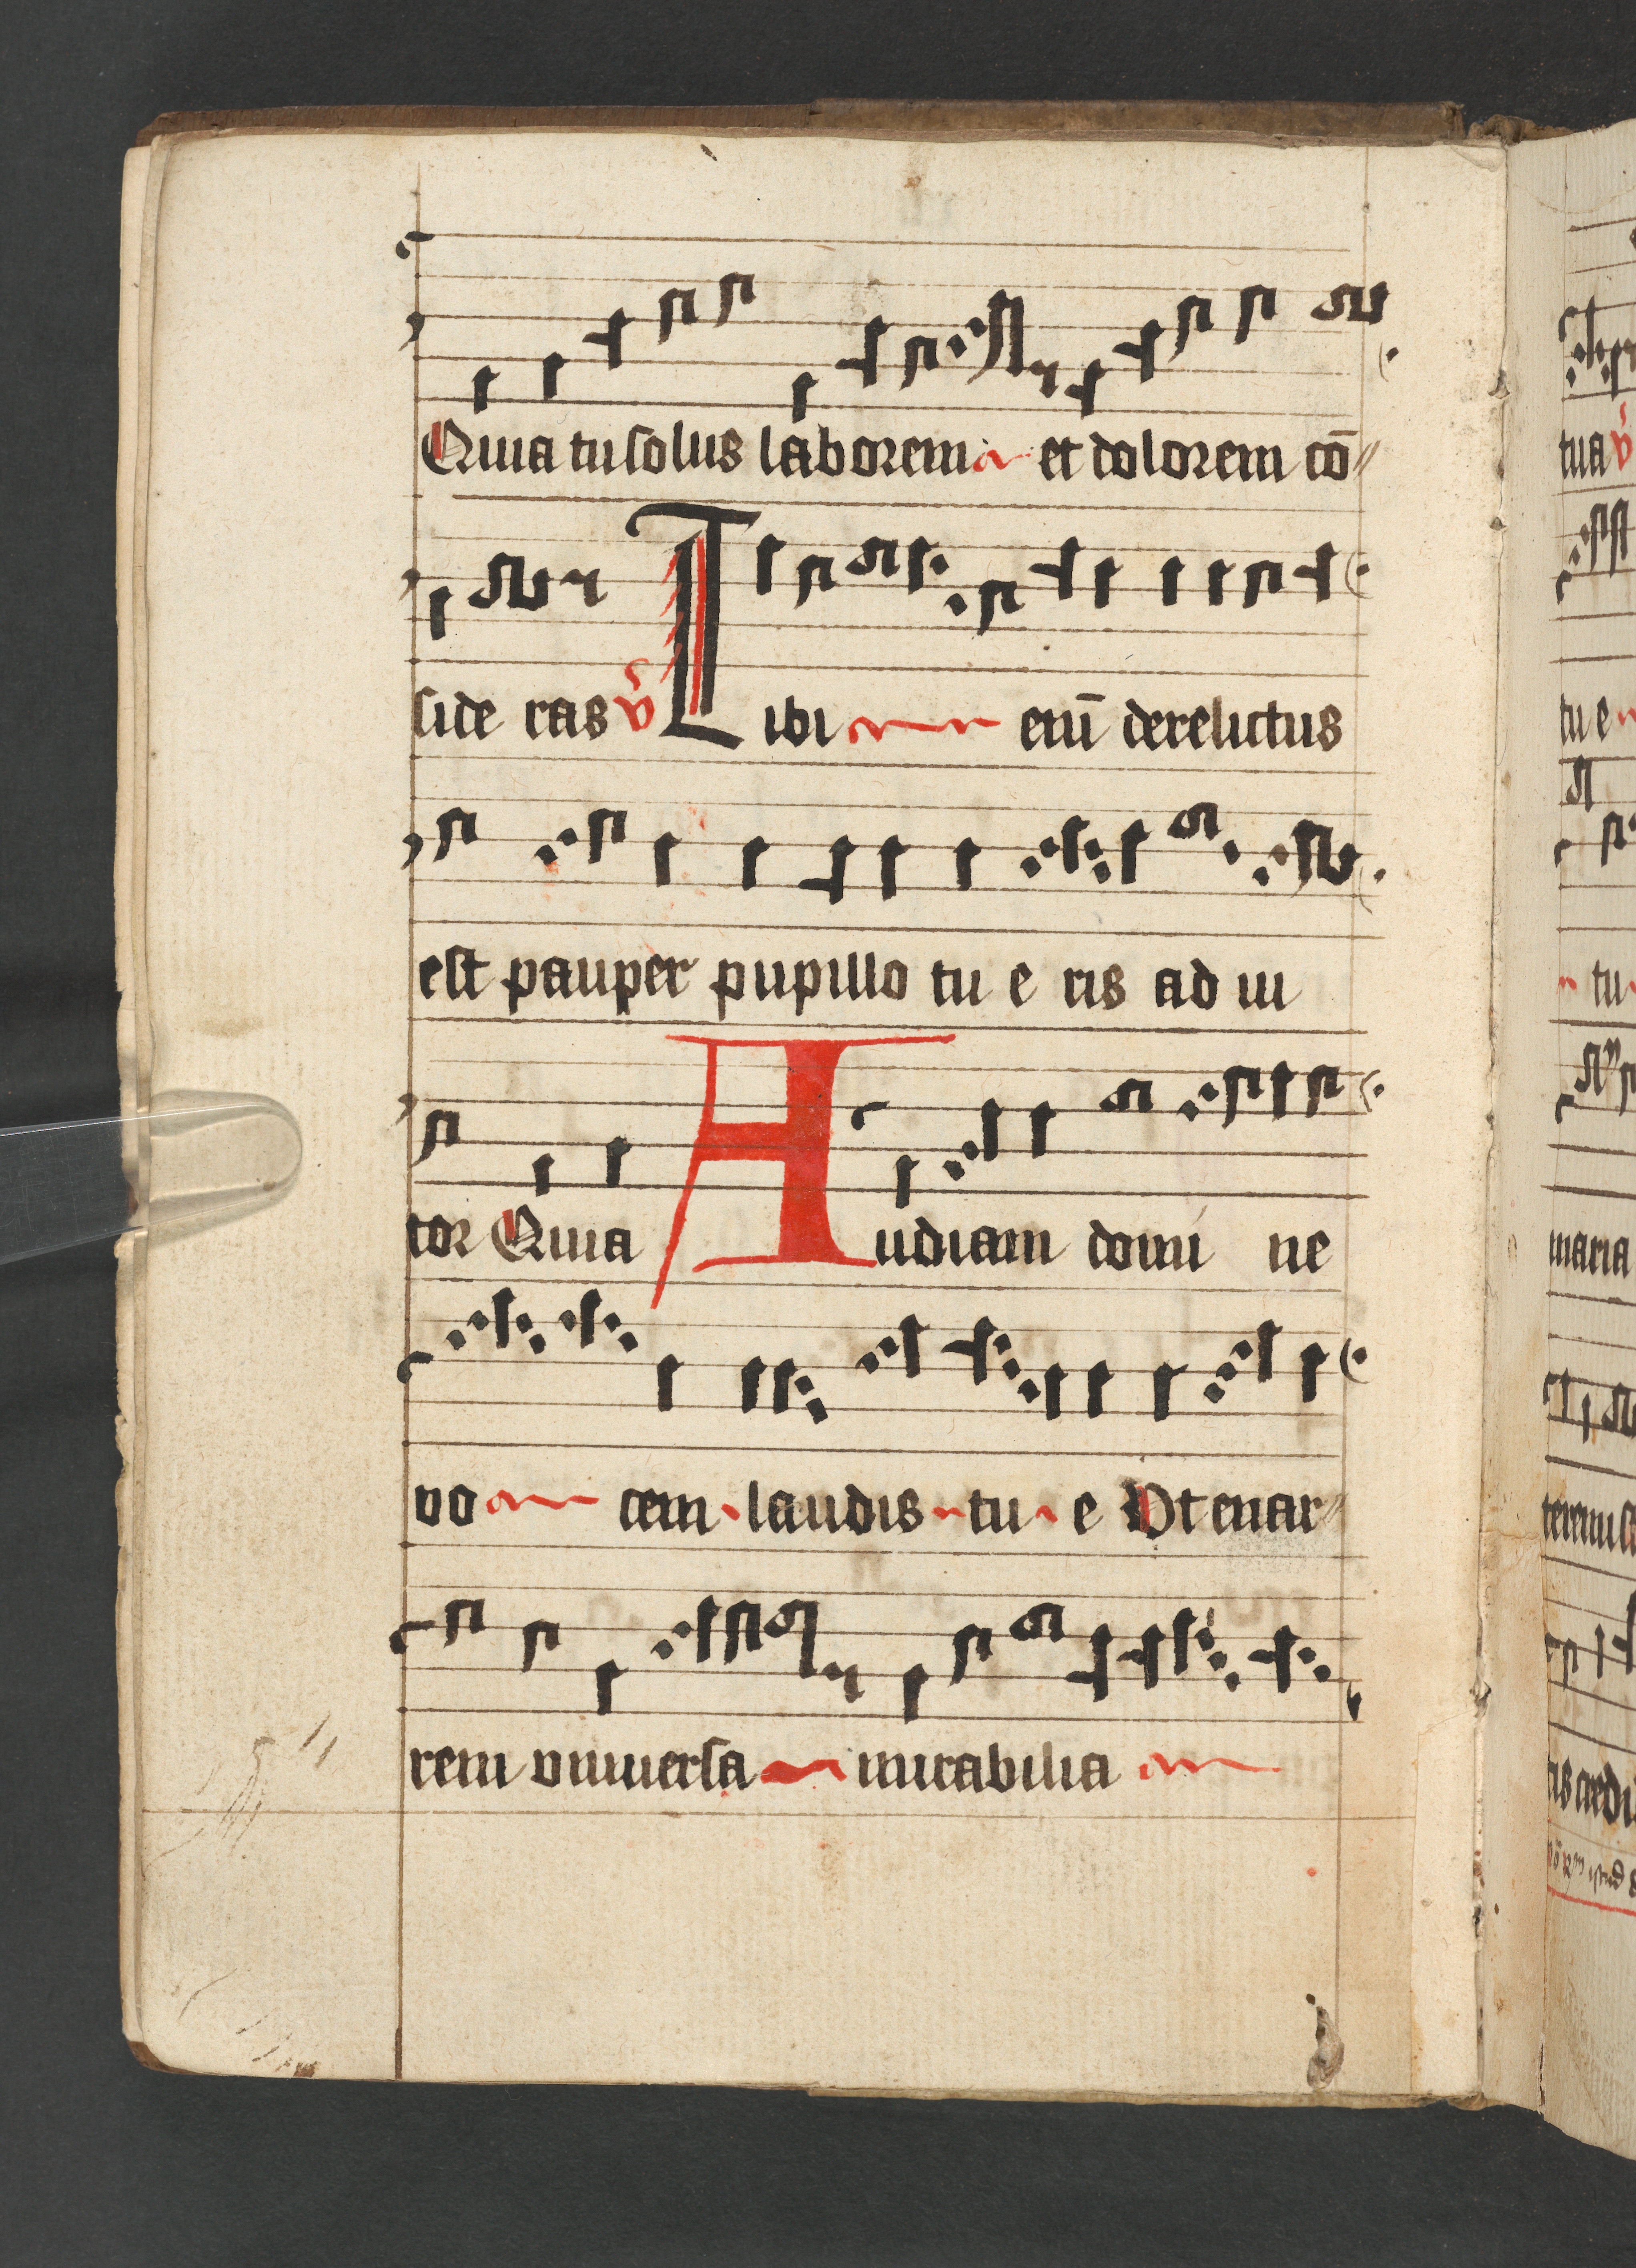 Quia tu solus laborem et dolorem cō
side ras v̄ Tibi enī derelictus
est pauper pupillo tu e ris ad iu
tor Quia Audiam domi ne
vo cem laudis tu e Vt enar
rem vniuersa mirabilia